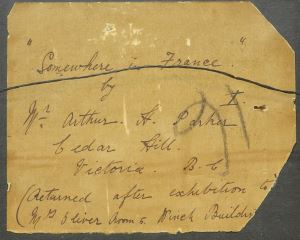 "Somewhere in France."
by
Mr. Arthur. H. Parker
Cedar Hill.
Victoria. B.C
(Returned after exhibition to
Mrs Oliver Room 5. Winch Building